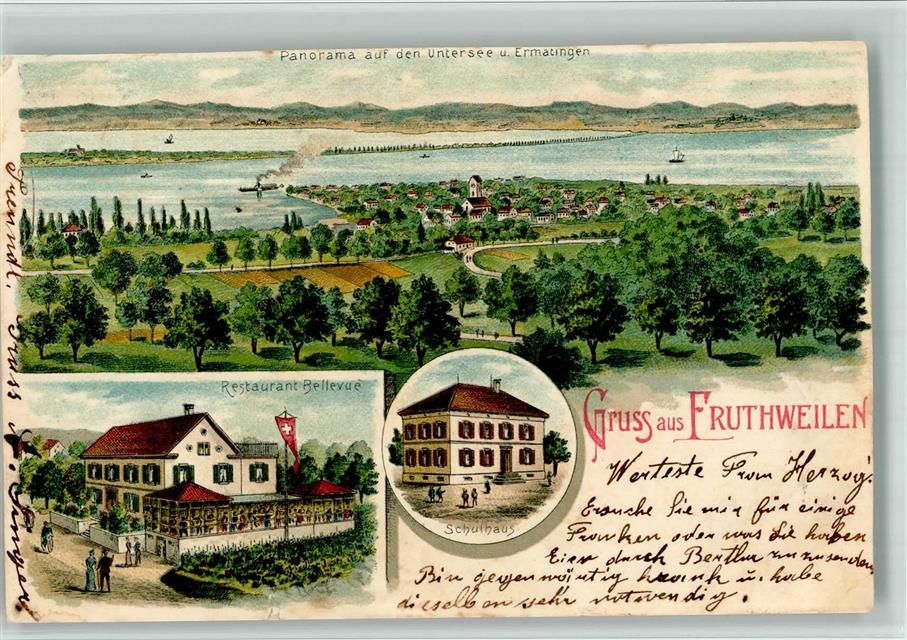 Panorama auf den Untersee u. Ermatingen
Restaurant Bellevue
Schulhaus
Gruss aus Fruthweilen
Werteste Frau Herzog!
Ersuche Sie mir für einige
Franken oder was Sie haben
Eier durch Bertha zuzusenden
Bin gegenwärtig krank u. habe
dieselben sehr notwendig.
Freundl. Gruss